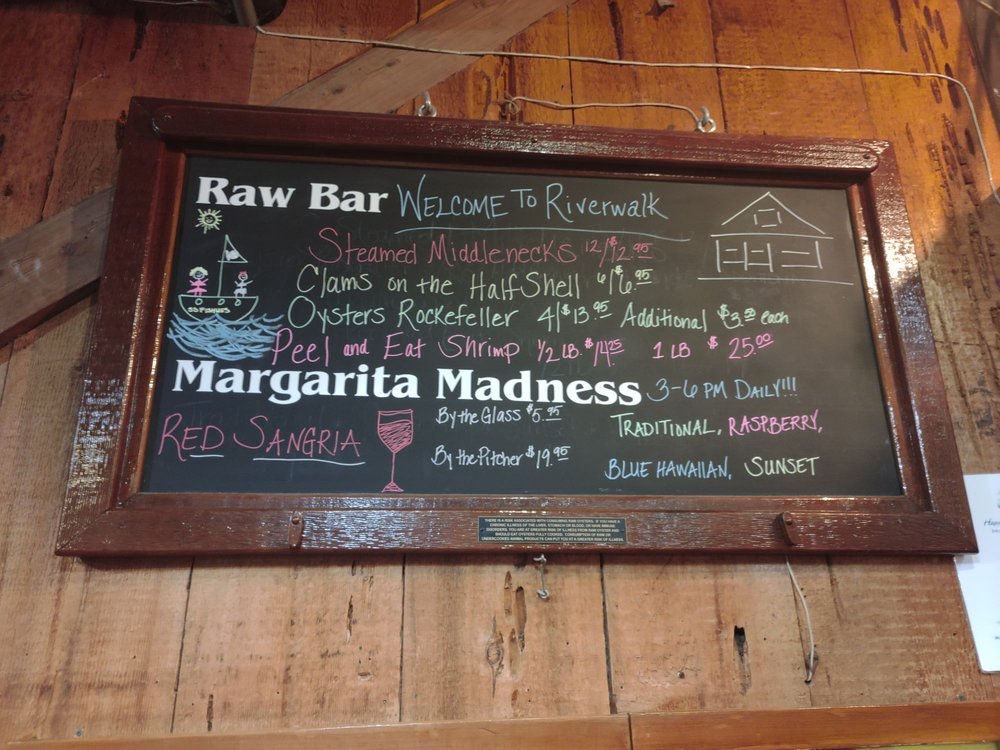 Raw Bar WELCOME TO Riverwalk
STEAMED MIDDLENECKS 12/$12.95
CLAMS ON THE HALF SHELL 6/$6.95
OYSTERS ROCKEFELLER 4/$13.95 Additional $3.50 each
PEEL and EAT SHRIMP 1/2 LB. $14.25 1 LB $25.00
Margarita Madness 3-6 PM DAILY!!!
RED SANGRIA
By the Glass $5.95
By the Pitcher $19.95
TRADITIONAL, RASPBERRY,
BLUE HAWAIIAN, SUNSET
THERE IS A RISK ASSOCIATED WITH CONSUMING RAW OYSTERS. IF YOU HAVE A
CHRONIC ILLNESS OF THE LIVER, STOMACH OR BLOOD, OR HAVE IMMUNE
DISORDERS, YOU ARE AT GREATER RISK OF ILLNESS FROM RAW OYSTERS AND
SHOULD EAT OYSTERS FULLY COOKED. CONSUMPTION OF RAW OR
UNDERCOOKED ANIMAL PRODUCTS CAN PUT YOU AT A GREATER RISK OF ILLNESS.